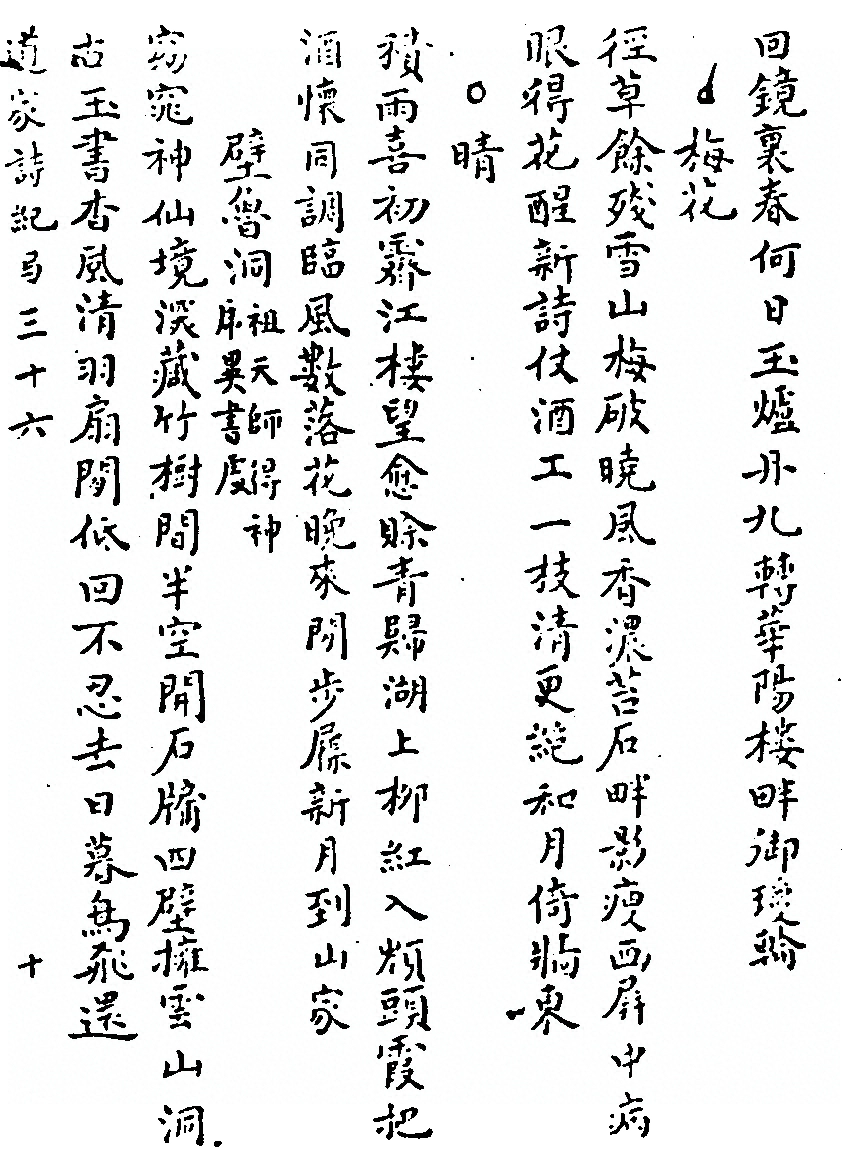 回鏡裏春何日玉爐丹九轉華陽樓畔御瓊輪
梅花
徑草餘殘雪山梅破曉風香濃苔石畔影瘦画屏中病
眼得花醒新詩仗酒工一枝清更絕和月倚牆東
晴
積雨喜初霽江樓望愈賒青歸湖上柳紅入頰頭霞把
酒懷同調臨風數落花晚來閒步屧新月到山家
壁魯洞
祖天師得神
異書處
窈窕神仙境深藏竹樹間半空開石牖四壁擁雲山洞
古玉書杳風清羽扇閒低回不忍去日暮鳥飛還
道家詩紀 三十六 十